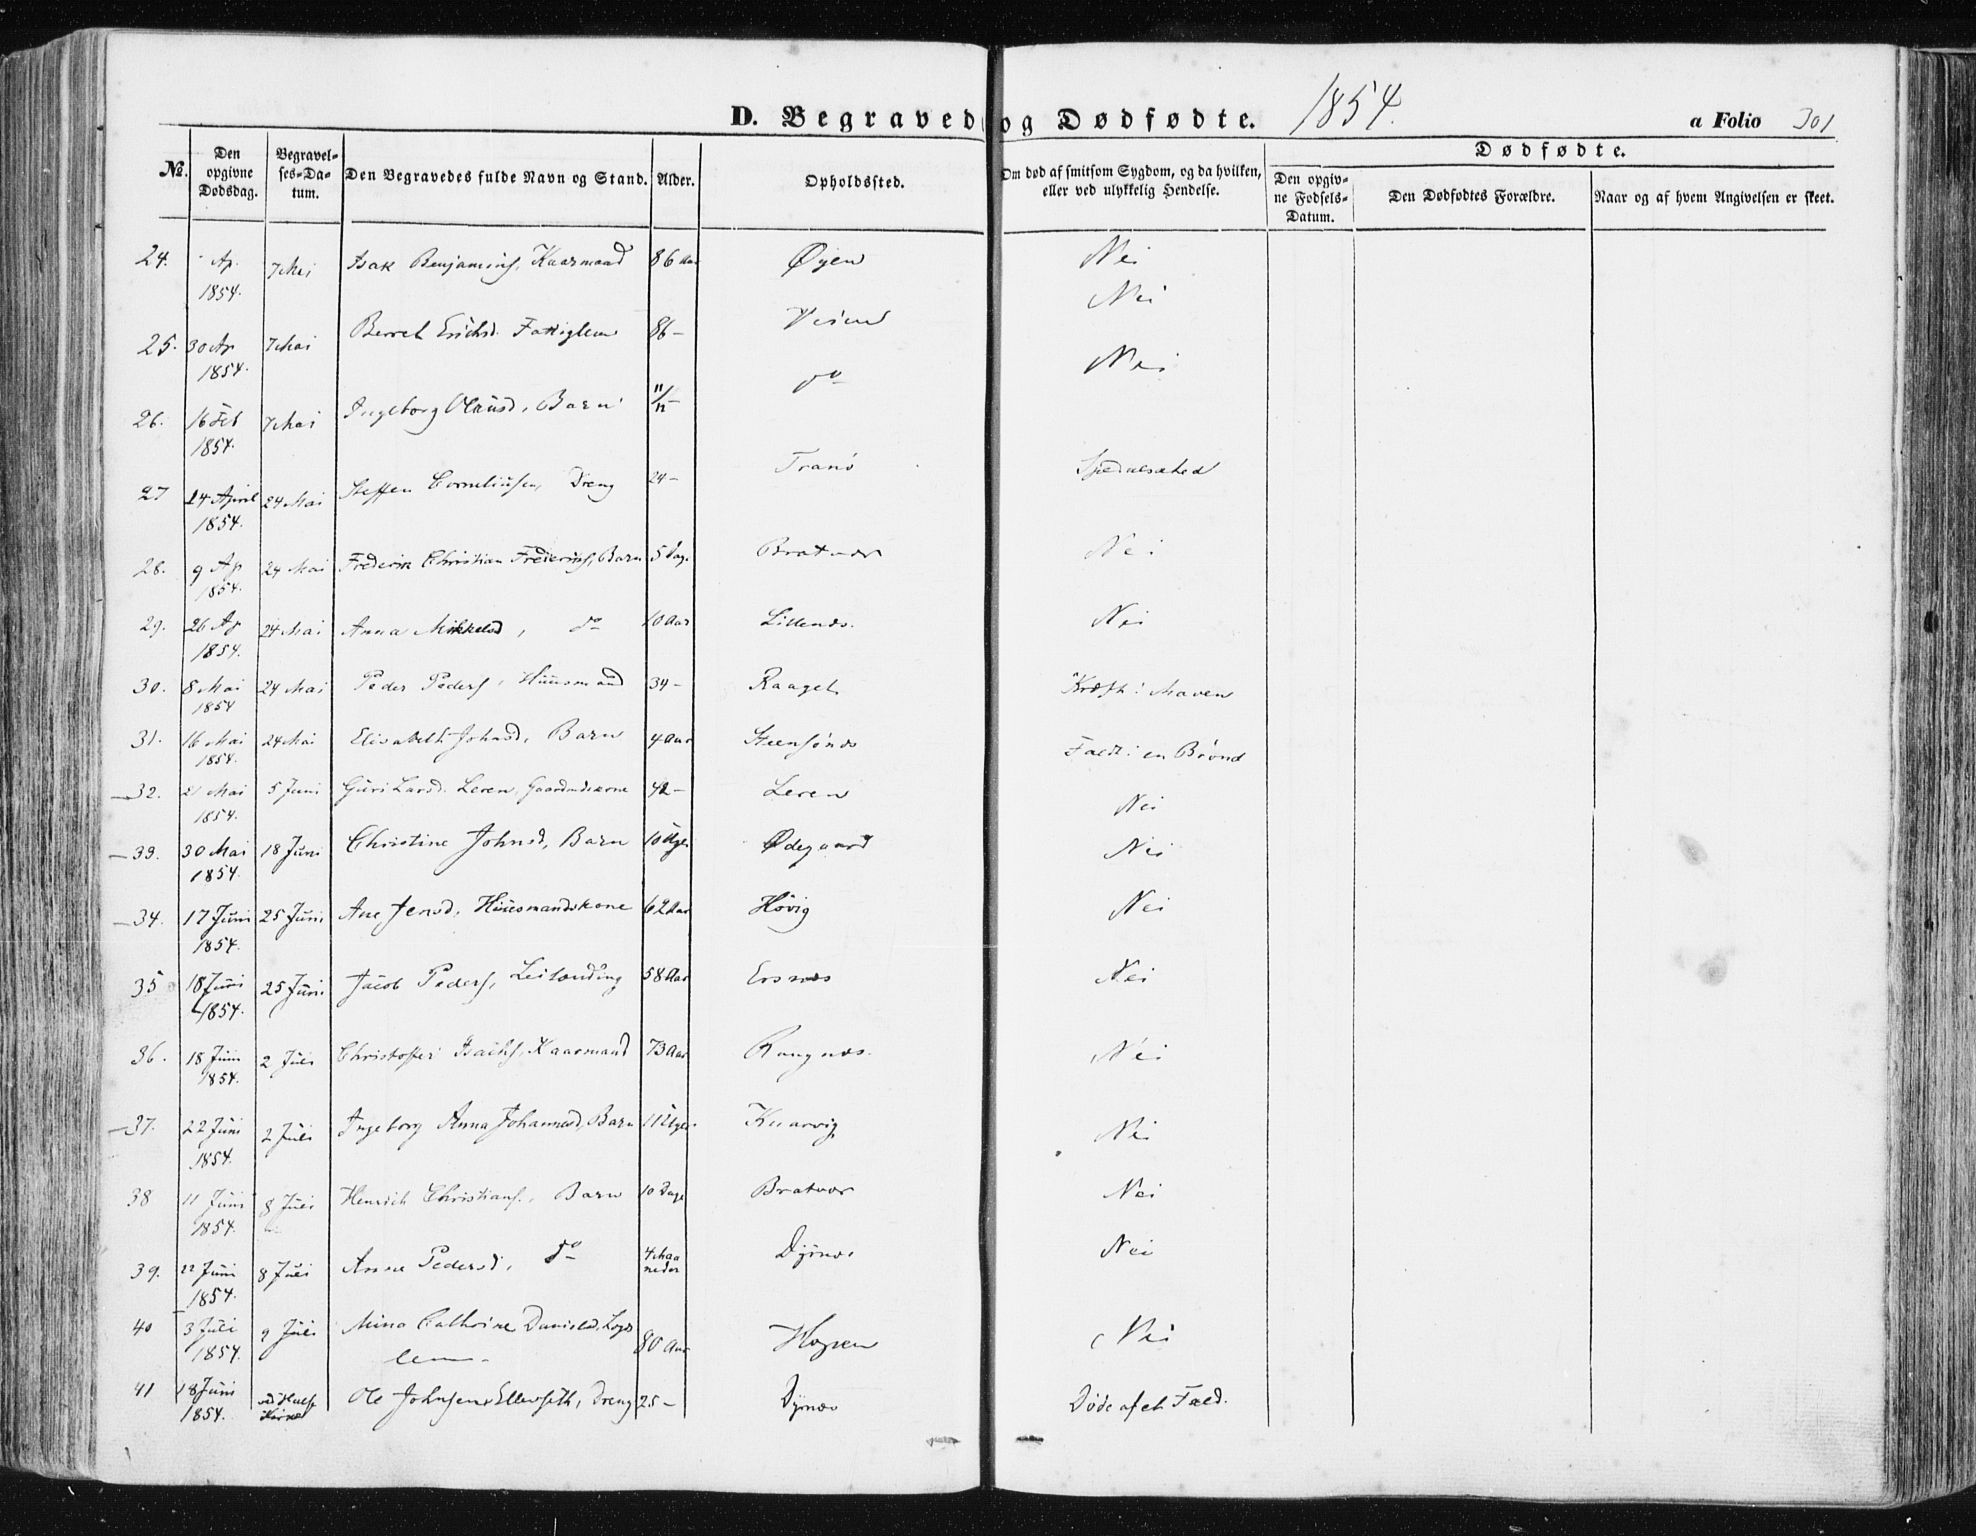 D. Begravede og Dødfødte. 1854. a Folio 301
No. Den opgivne Dødsdag. Begravelses-Datum. Den Begravedes fulde Navn og Stand. Alder. Opholdssted. Om død af smitsom Sygdom, og da hvilken, eller ved ulykkelig Hendelse. Dødfødte.
Den opgivne Fødsels-Datum. Den Dødfødtes Forældre. Naar og af hvem Angivelsen er skeet.
24. Ap. 1854. 7 Mai Isak Benjamins, Kaarmand 86 Aar Øyen Nei
25. 30 Ap 1854. 7 Mai Berret Erichsd. Fattiglem 86 – Nei
26. 16 Feb 1854. 7 Mai Ingeborg Olausd, Barn 11/12 – do Nei
27 14 April 1854. 24 Mai Steffen Corneliusen, Dreng 24 – Tranö Spedalskhed
28. 9 Ap 1854. 24 Mai Frederik Christian Frederiks, Barn 5 Dage Bratvær Nei
29. 26 Ap 1854. 24 Mai Anna Mikkelsd, do 10 Aar Nei
30. 8 Mai 1854 24 Mai Peder Peders, Huusmand 34 – Kræft i Maven
31. 16 Mai 1854. 24 Mai Elisabeth Johnsd, Barn 4 Aar Faldt i en Brönd
32. 21 Mai 1854. 5 Juni Guri Larsd. Leren, Gaardmdskone 42 – Leren Nei
33. 30 Mai 1854. 18 Juni Christine Johnsd, Barn 10 Uger Ødegaard Nei
34. 17 Juni 1854. 25 Juni Ane Jensd, Huusmandskone 62 Aar Hövig Nei
35 18 Juni 1854. 25 Juni Jacob Peders, Leilænding 58 Aar Ersnæs Nei
36. 18 Juni 1854. 2 Juli Christoffer Isachs, Kaarmand 73 Aar Rangnæs. Nei
37. 22 Juni 1854. 2 Juli Ingeborg Anna Johannesd, Barn 11 Uger. Knarvig Nei
38 11 Juni 1854. 8 Juli Henrich Christians, Barn 10 Dage Bratvær Nei
39. 22 Juni 1854. 8 Juli Anne Pedersd, do 4 Maaneder Dyrnæs Nei
40 3 Juli 1854. 9 Juli Mina Cathrine Danielsd, Lægdslem – 80 Aar Hopen Nei
41 18 Juni 1854. ved Halse Kirke Ole Johnsen Ellevseth, Dreng 25 – Dyrnæs Döde af et Fald.